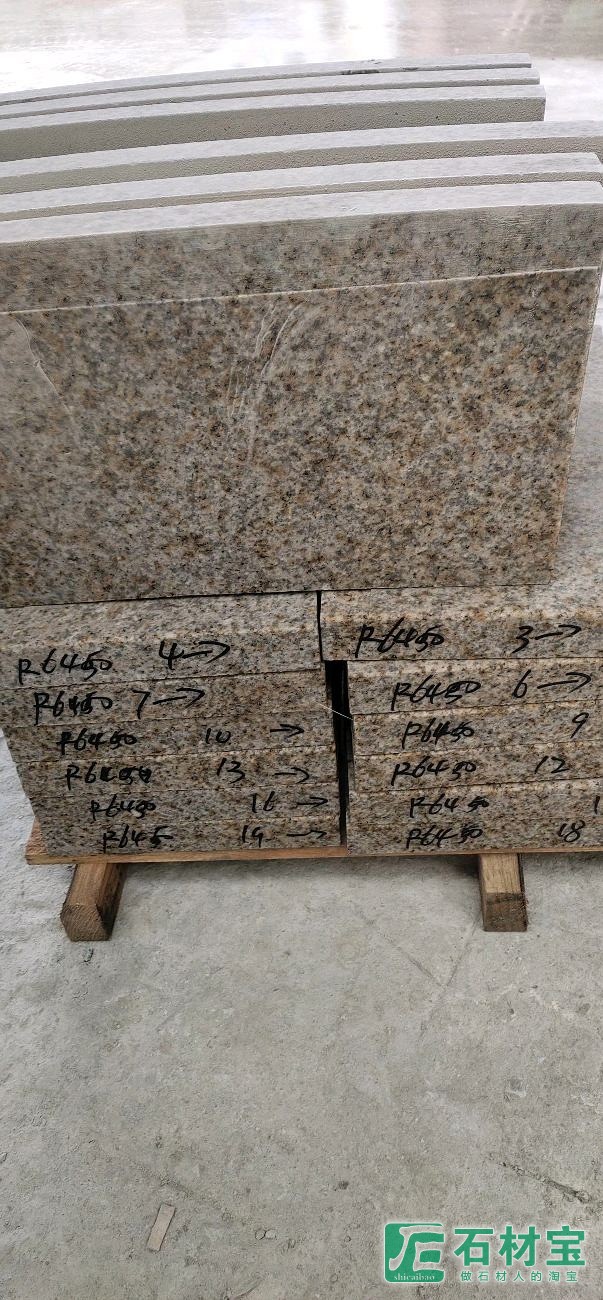 R6450 4→ R6450 3→
R6450 7→ R6450 6→
R6450 10 → R6450 9
R6450 13 → R6450 12
R6450 16 → R6450 1
R645 19 → R6450 18
石材宝
shicaibao 做石材人的淘宝